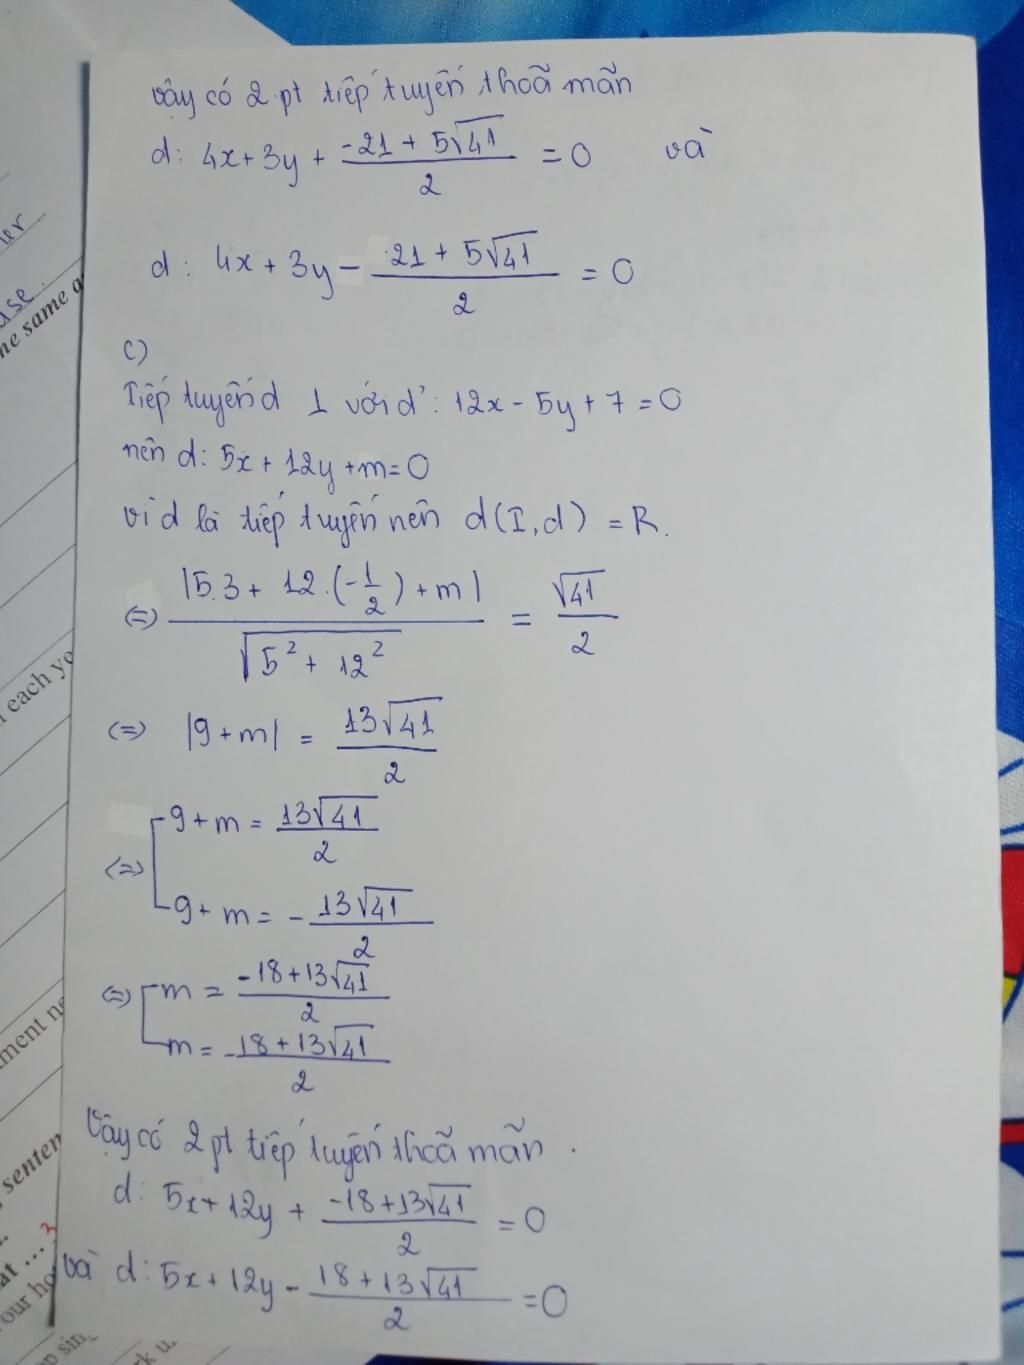 vậy có 2 pt tiếp tuyến thoã mãn
d: 4x + 3y + (-21 + 5√41)/2 = 0 và
d: 4x + 3y - (21 + 5√41)/2 = 0
c)
Tiếp tuyến d ⊥ với d': 12x - 5y + 7 = 0
nên d: 5x + 12y + m = 0
vì d là tiếp tuyến nên d(I,d) = R.
(=) |5.3 + 12.(-1/2) + m| / √(5² + 12²) = √41/2
(=) |9 + m| = 13√41/2
(=) [ 9 + m = 13√41/2
9 + m = - 13√41/2
(=) [ m = (-18 + 13√41)/2
m = - (18 + 13√41)/2
Vậy có 2 pt tiếp tuyến thoã mãn.
d: 5x + 12y + (-18 + 13√41)/2 = 0
và d: 5x + 12y - (18 + 13√41)/2 = 0
ne same a
each ye
ment ne
senten
at ... 3
our ho